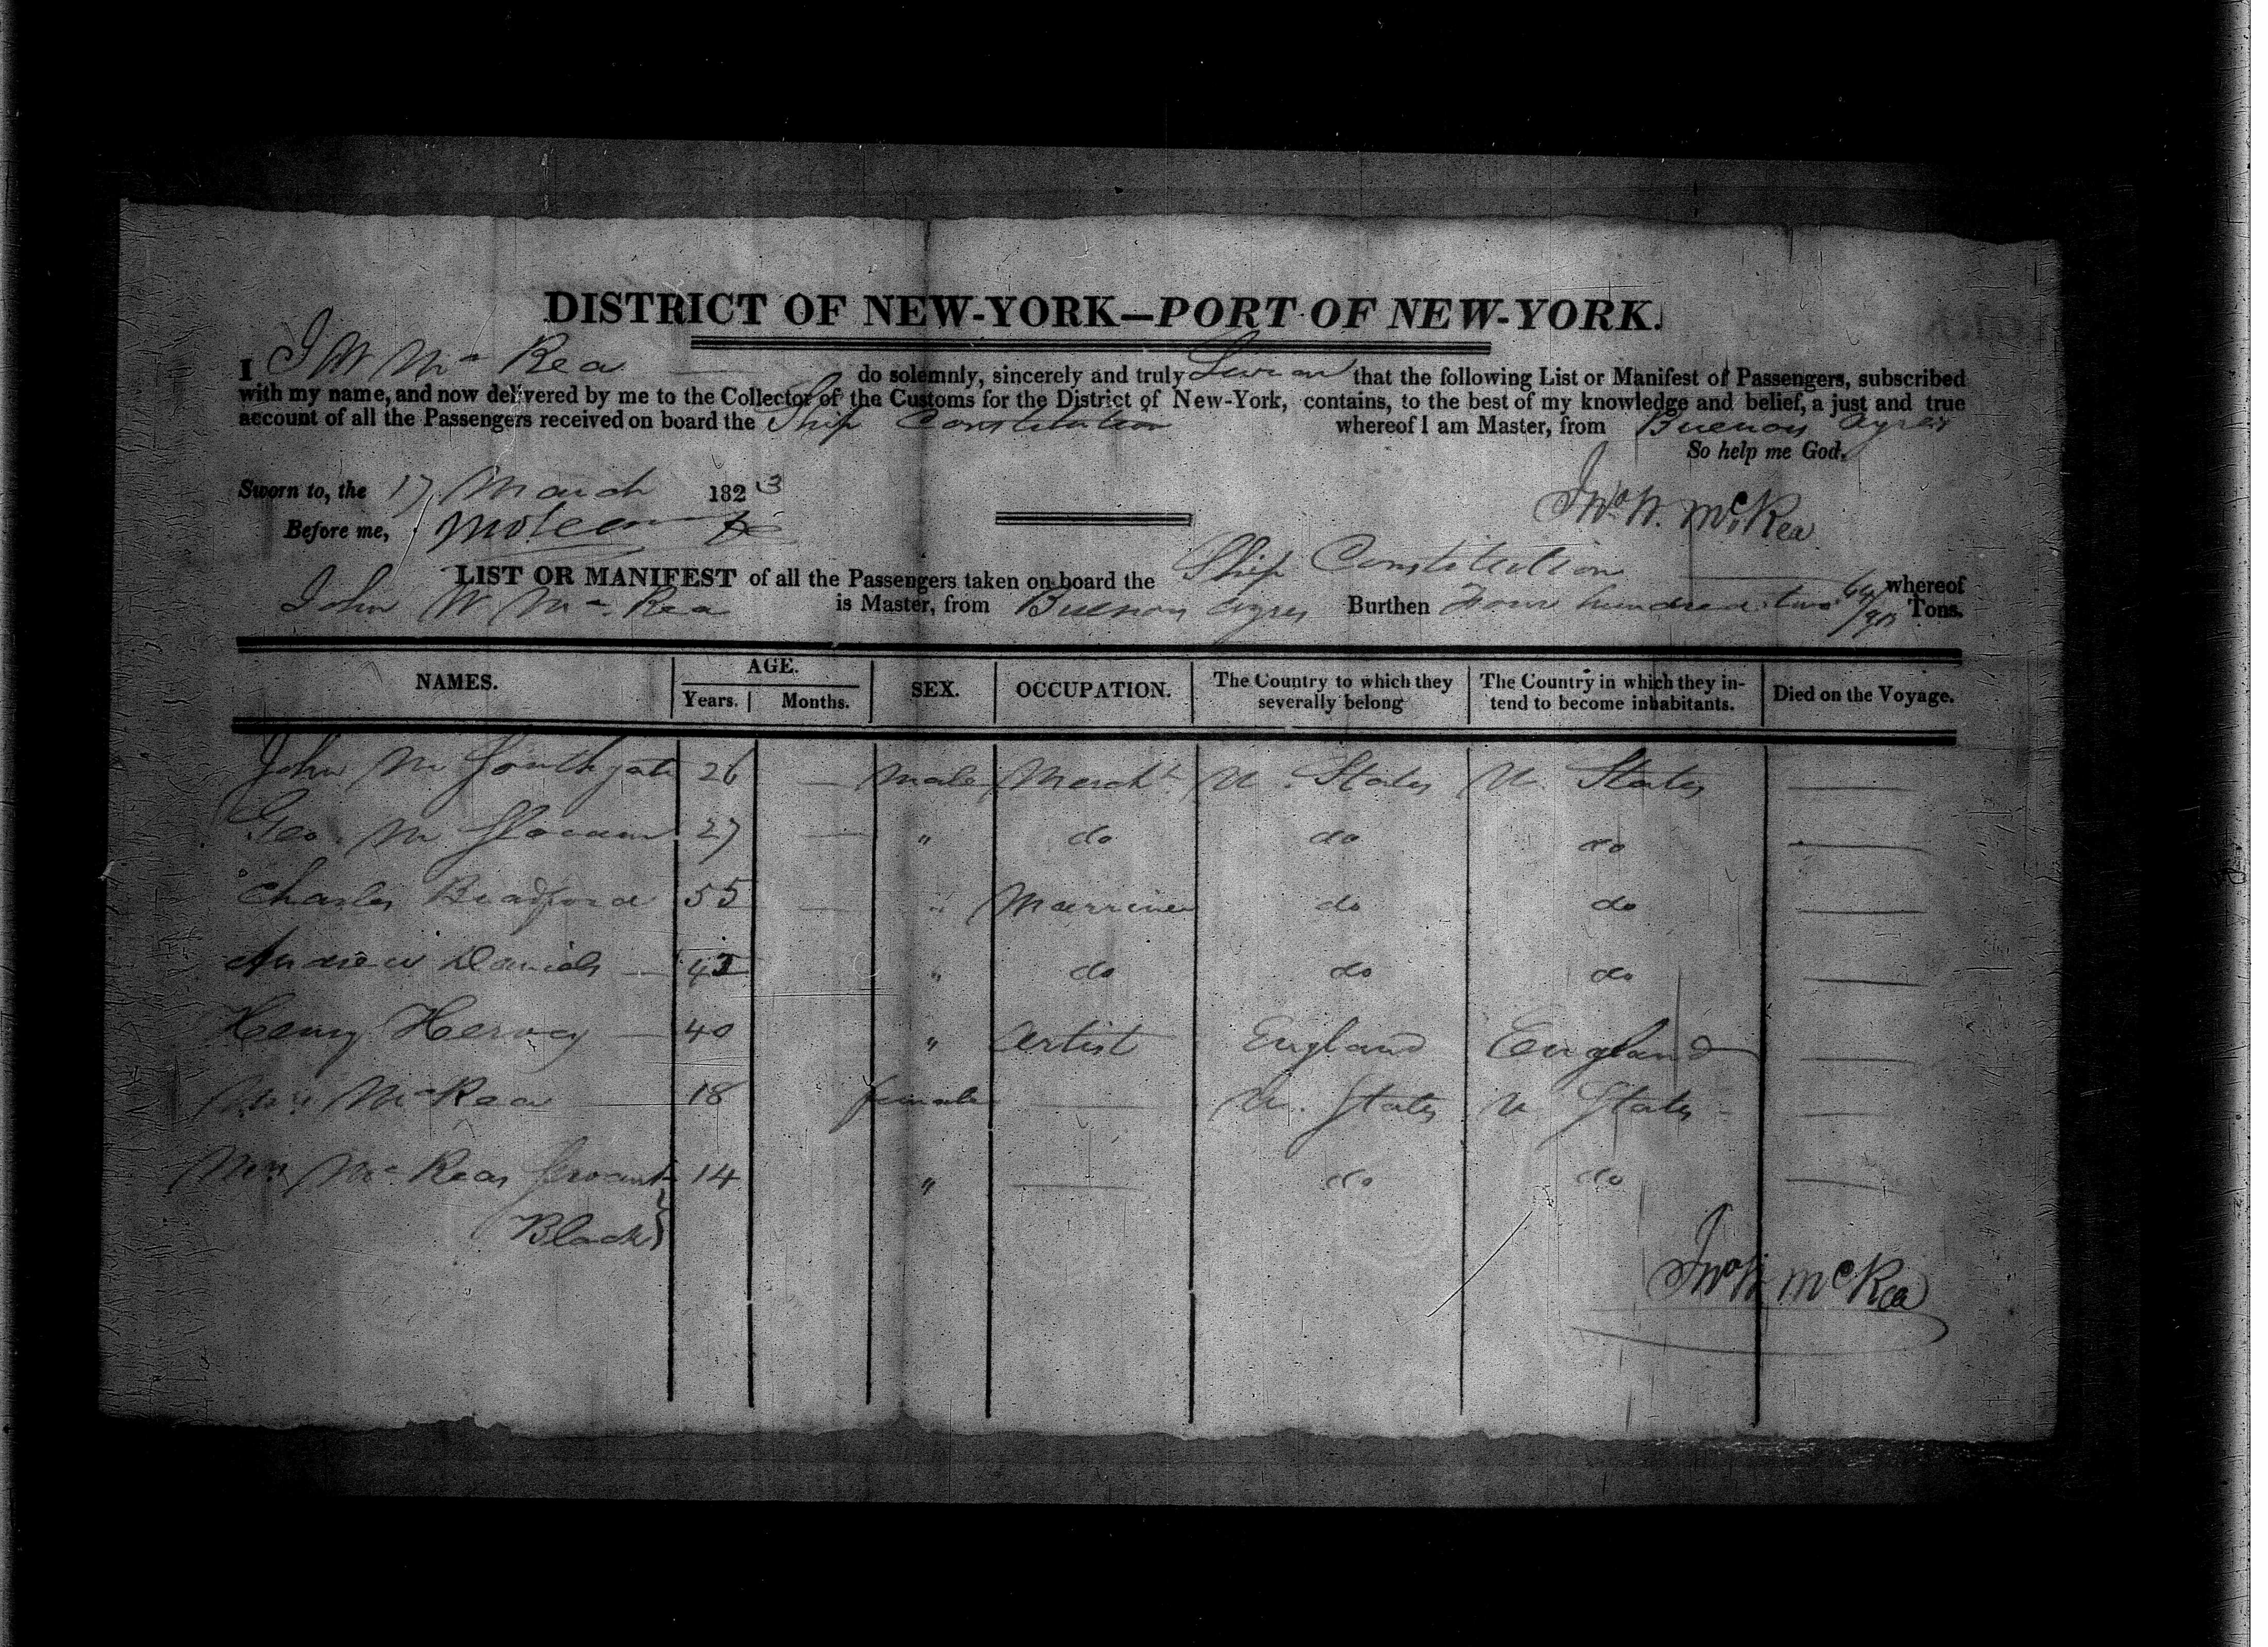 DISTRICT OF NEW-YORK—PORT OF NEW-YORK.
I J W Mc Rea do solemnly, sincerely and truly Swear that the following List or Manifest of Passengers, subscribed
with my name, and now delivered by me to the Collector of the Customs for the District of New-York, contains, to the best of my knowledge and belief, a just and true
account of all the Passengers received on board the Ship Constitution whereof I am Master, from Buenos Ayres
So help me God.
Sworn to, the 17 March 1823
Jno W. McRea
Before me,
LIST OR MANIFEST of all the Passengers taken on board the Ship Constitution whereof
John W Mc Rea is Master, from Buenos Ayres Burthen Four hundred two 64/95 Tons.
NAMES. AGE. Years. Months. SEX. OCCUPATION. The Country to which they severally belong The Country in which they intend to become inhabitants. Died on the Voyage.
John M Southgate 26 — male Mercht U. States U. States —
Geo. M Slocum 27 — " do do do —
Charles Bradford 55 — " Marriner do do —
Andrew Daniels — 42 " do do do —
Henry Hervey — 40 " Artist England England —
Mrs McRea 18 female — U. States U States —
Mrs Mc Reas Servant 14 " — do do —
Black }
Jno W McRea